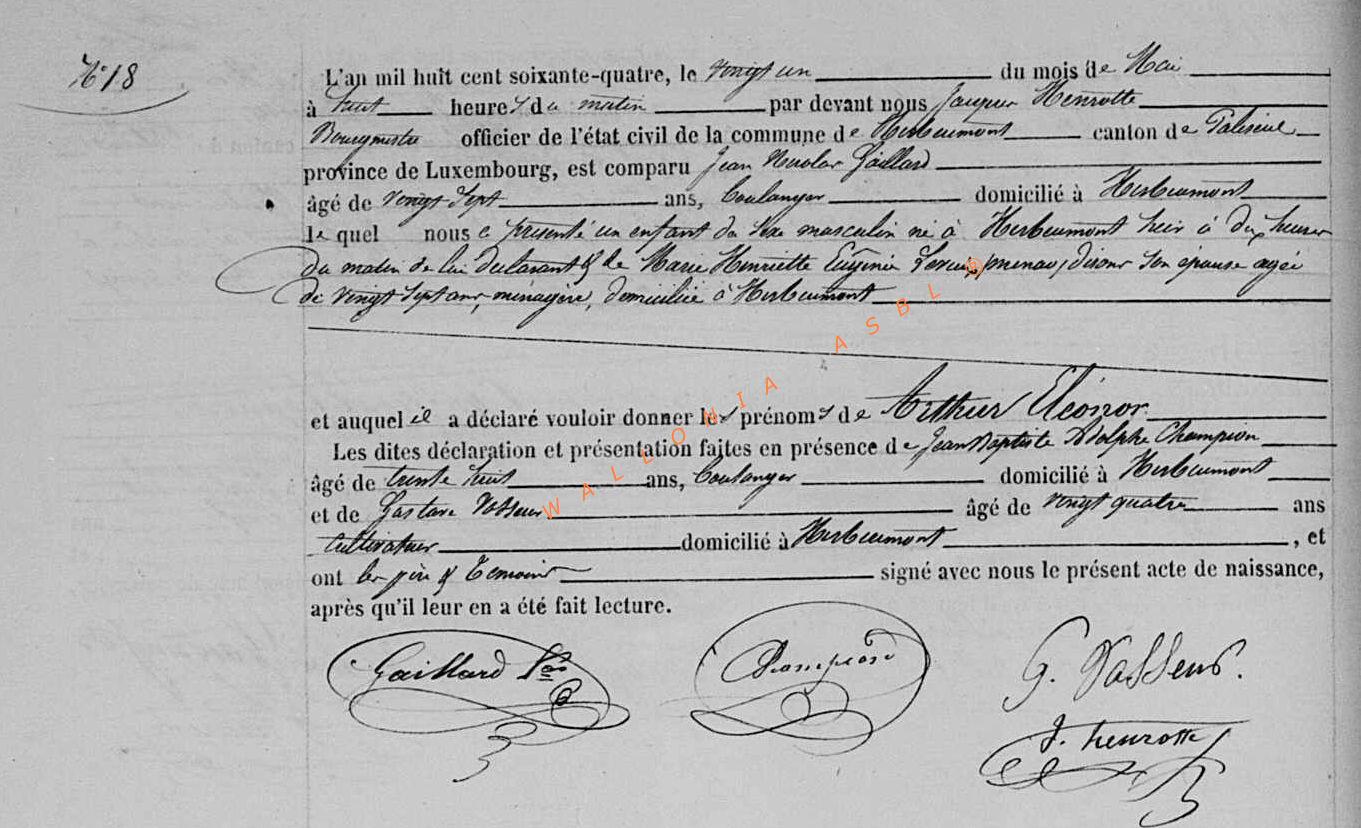 N° 18
L'an mil huit cent soixante-quatre, le vingt un du mois de Mai
à huit heures du matin par devant nous Jacques Henrotte
Bourgmestre officier de l'état civil de la commune de Herbeumont canton de Paliseul
province de Luxembourg, est comparu Jean Nicolas Gaillard
âgé de vingt Sept ans, boulanger domicilié à Herbeumont
le quel nous a présenté un enfant du sexe masculin né à Herbeumont hier à dix heures
du matin de lui déclarant & de Marie Henriette Eugénie disons son épouse agée
de vingt Sept ans, ménagère, domiciliée à Herbeumont
et auquel il a déclaré vouloir donner les prénoms de Arthur Eléonor
Les dites déclaration et présentation faites en présence de Jean Baptiste Adolphe Champion
âgé de trente huit ans, boulanger domicilié à Herbeumont
et de Gustave Vasseur âgé de vingt quatre ans
Cultivateur domicilié à Herbeumont, et
ont les père & témoins signé avec nous le présent acte de naissance,
après qu'il leur en a été fait lecture.
Gaillard Champion G. Vasseur.
J. henrotte
WALLONIA ASBL